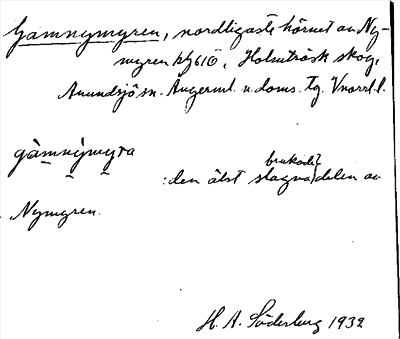 Gamnymyren, nordligaste hörnet av Ny-
myren kfg 616, Holmträsk skog,
Anundsjö sn. Ångerml. n. doms. Tg. Vnorrl. l.
gàmnỳmyra
brukade
: den älst slagna delen av
Nymyren.
H. A. Söderberg 1932